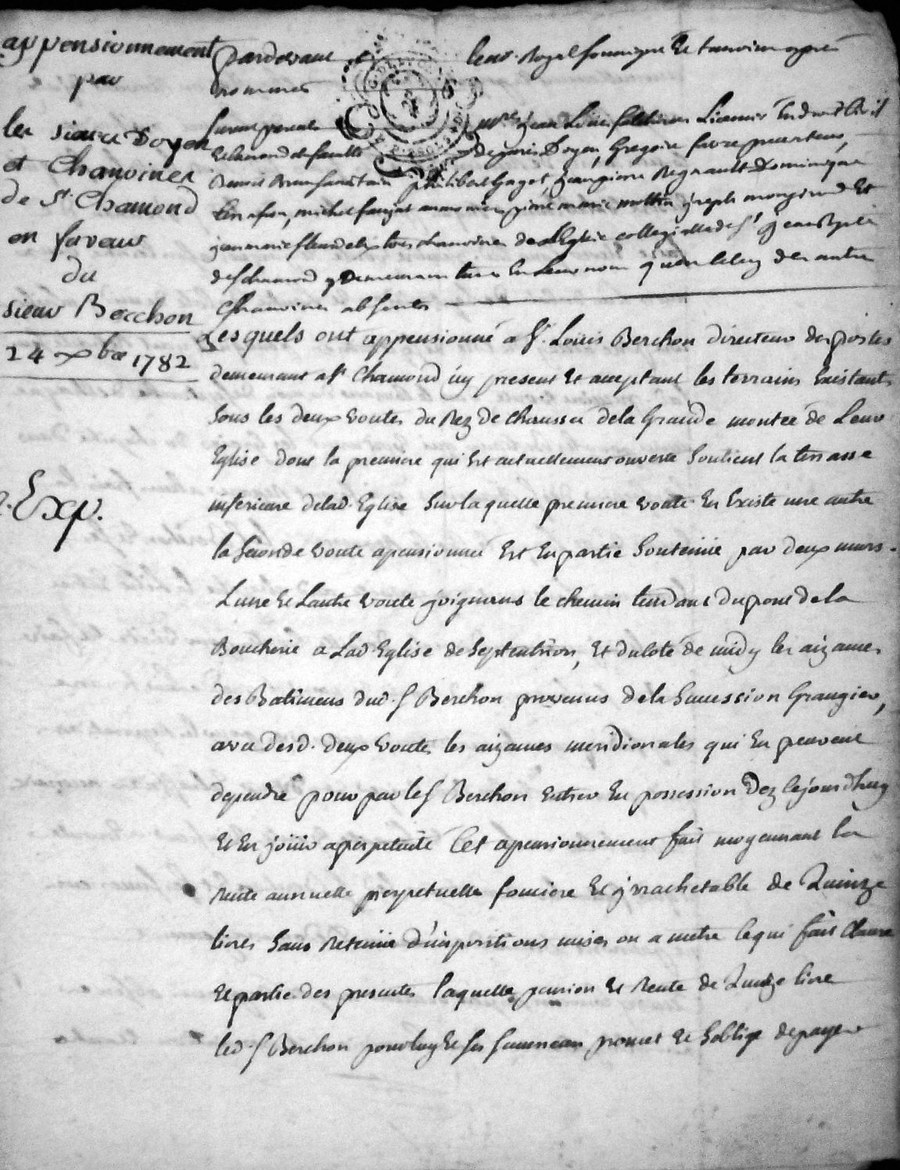 appensionnement
par
les sieurs Doyen
et Chanoines
de St Chamond
en faveur
du
sieur Berchon
24 xbre 1782
Exp.
Pardevant le notaire Royal soussigné et temoins apres
nommés
furent presents Mre Jean Louis Licencié En droit Civil
et Canon de la faculté de paris Doyen, Gregoire favre precenteur,
Benoit philibert Gagot, jean pierre Regnault Dominique
michel pierre marie joseph Et
jean marie tous chanoines de L'Eglise collegialle de St jean Bpte
de St Chamond y Demeurants tant En Leurs noms qu'en Celuy des autres
Chanoines absents
Lesquels ont appensionné a Sr. Loüis Berchon directeur des postes
demeurant a St Chamond icy present Et acceptant les terrains Existants
Sous les deux voutes du Rez de Chaussée de la Grande montée de Leur
Eglise dont la premiere qui Est actuellement ouverte Soutient la terrasse
inferieure de lad. Eglise Sur laquelle premiere voute En Existe une autre
la Seconde voute apensionnée Est En partie Soutenüe par deux murs
L'une Et L'autre voute joignants le chemin tendant du pont de la
Boucherie a Lad Eglise de Septentrion, Et du Coté de midy les aizances
des Batiments dud. Sr Berchon provenus de la Succession Grangier,
avec desd. deux Voutes les aizances meridionales qui En peuvent
dependre pour par le Sr Berchon Entrer En possession Dez Cejourdhuy
Et En joüir a perpetuité Cet apensionnement fait moyennant la
Rente annuelle perpetuelle fonciere Et jrrachetable de Quinze
livres Sans Retenüe d'impositions mises ou a metre Ce qui fait Clause
Et partie des presentes laquelle pension Et Rente de Quinze livres
led. Sr Berchon pour luy Et Ses Successeurs promet Et S'oblige de payer